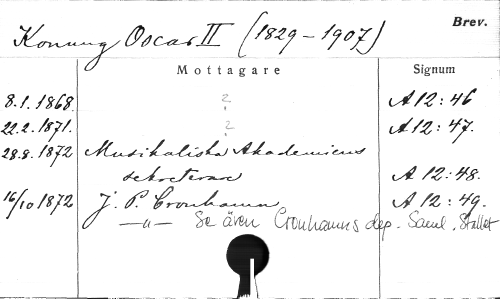 Konung Oscar II (1829-1907) Brev.
Mottagare Signum
8.1.1868. ? A 12:46
22.2.1871. ? A 12:47.
28.8.1872 Musikaliska Akademiens
sekreterare A 12:48.
16/10 1872 J. P. Cronhamn A 12:49.
—"— Se även Cronhamns dep. Saml. Stallet